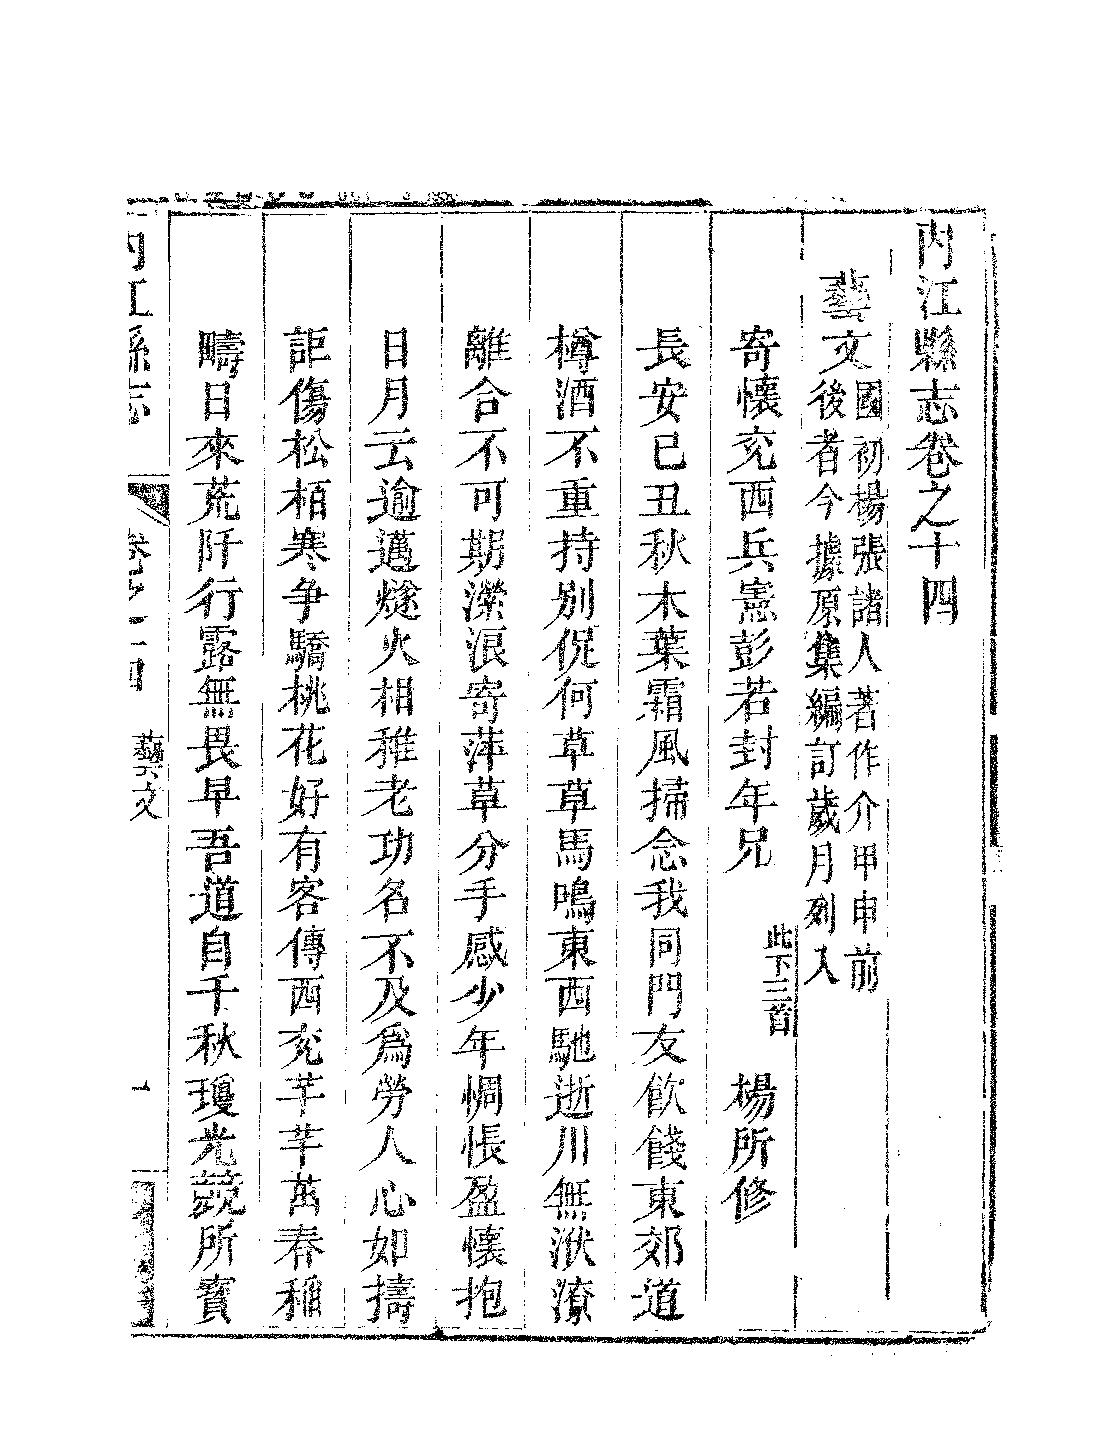 內江縣志卷之十四
藝文
國初楊張諸人著作介甲申前
後者今據原集編訂歲月列入
寄懷兖西兵憲彭若封年兄
此下三首
楊所修
長安已丑秋木葉霜風掃念我同門友飲餞東郊道
樽酒不重持別侃何草草馬鳴東西馳逝川無洑潦
離合不可期濴浪寄萍草分手感少年惆悵盈懷抱
日月云逾邁燧火相稚老功名不及爲勞人心如擣
詎傷松栢寒争驕桃花好有客傳西兖芊芊萬春稲
疇日來荒阡行露無畏早吾道自千秋瓊光競所寳
內江縣志
卷之十四
藝文
一